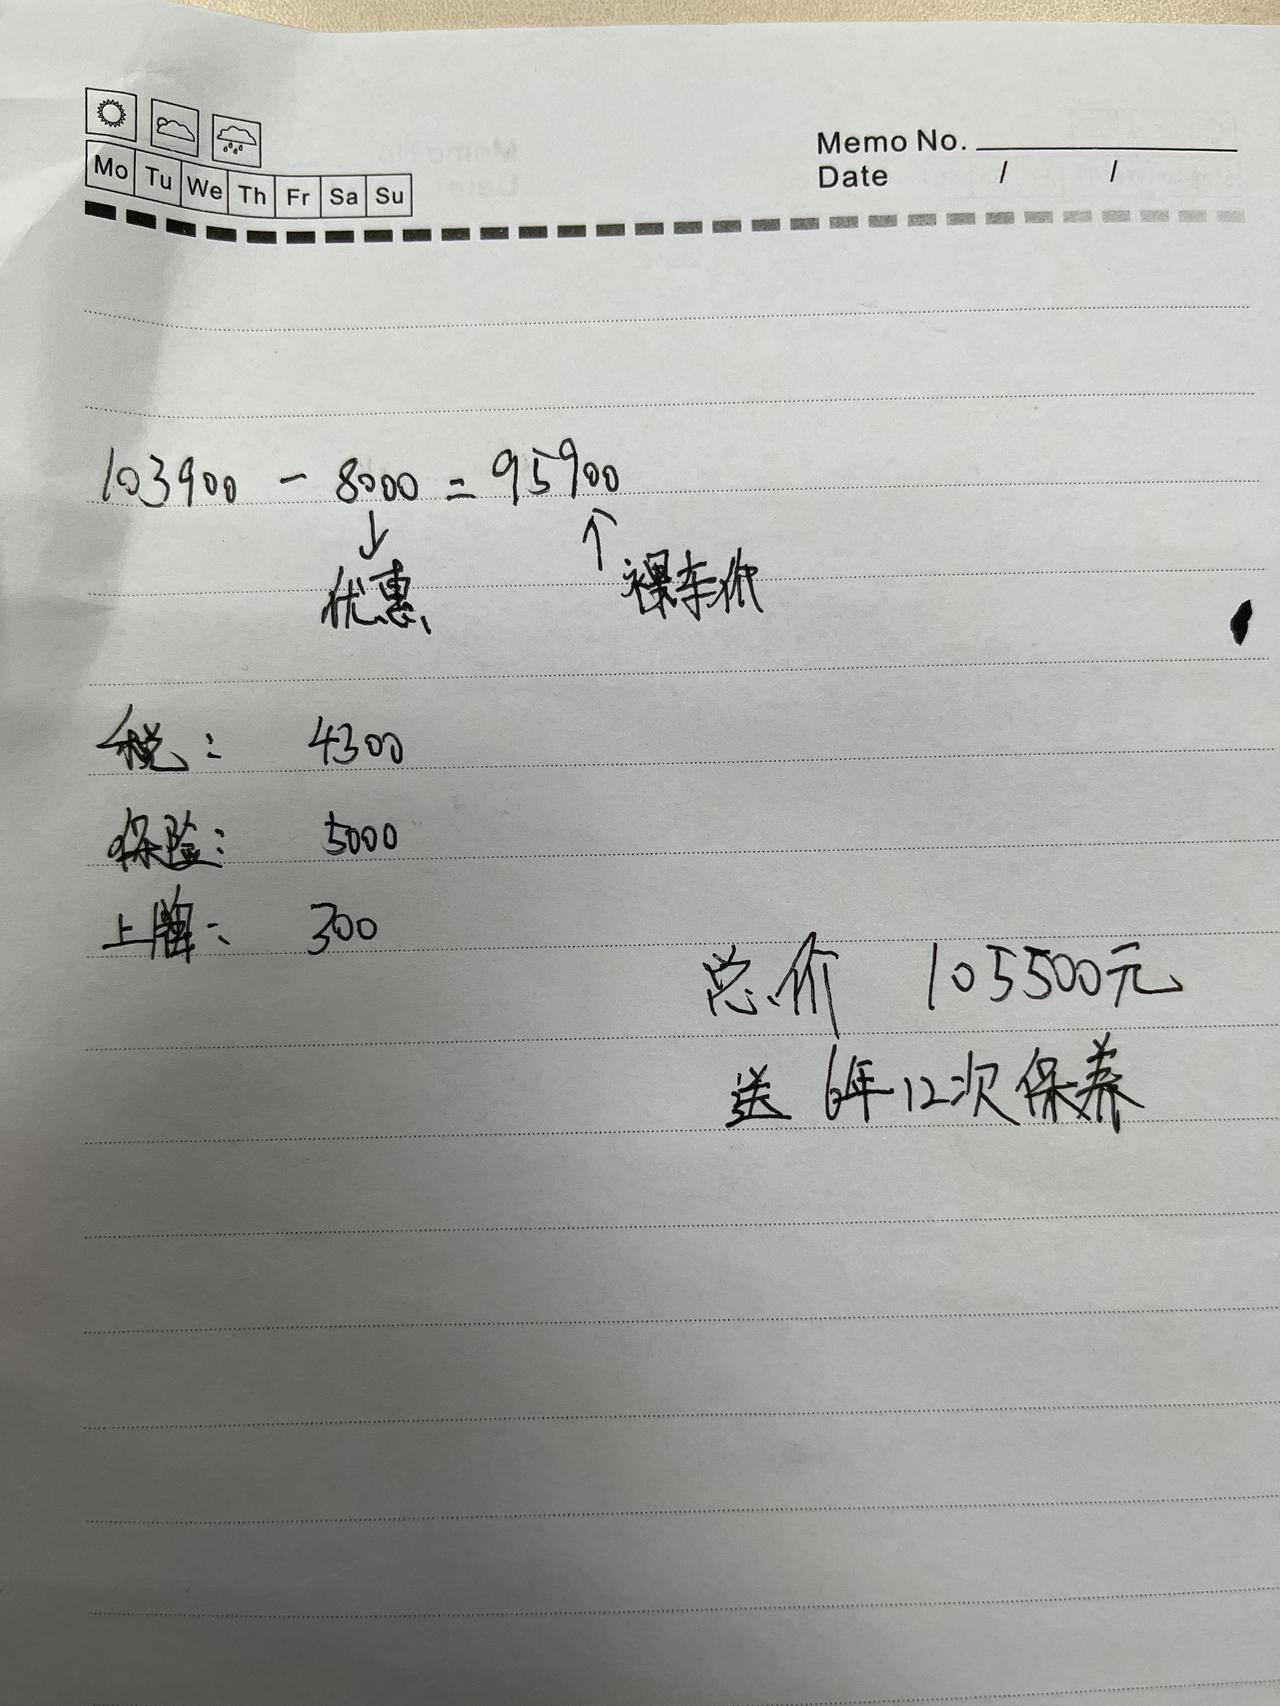 Mo Tu We Th Fr Sa Su
Memo No.
Date / /
103900 - 8000 = 95900
↓ ↑
优惠 裸车价
税: 4300
保险: 5000
上牌: 300
总价 105500元
送 6年12次保养